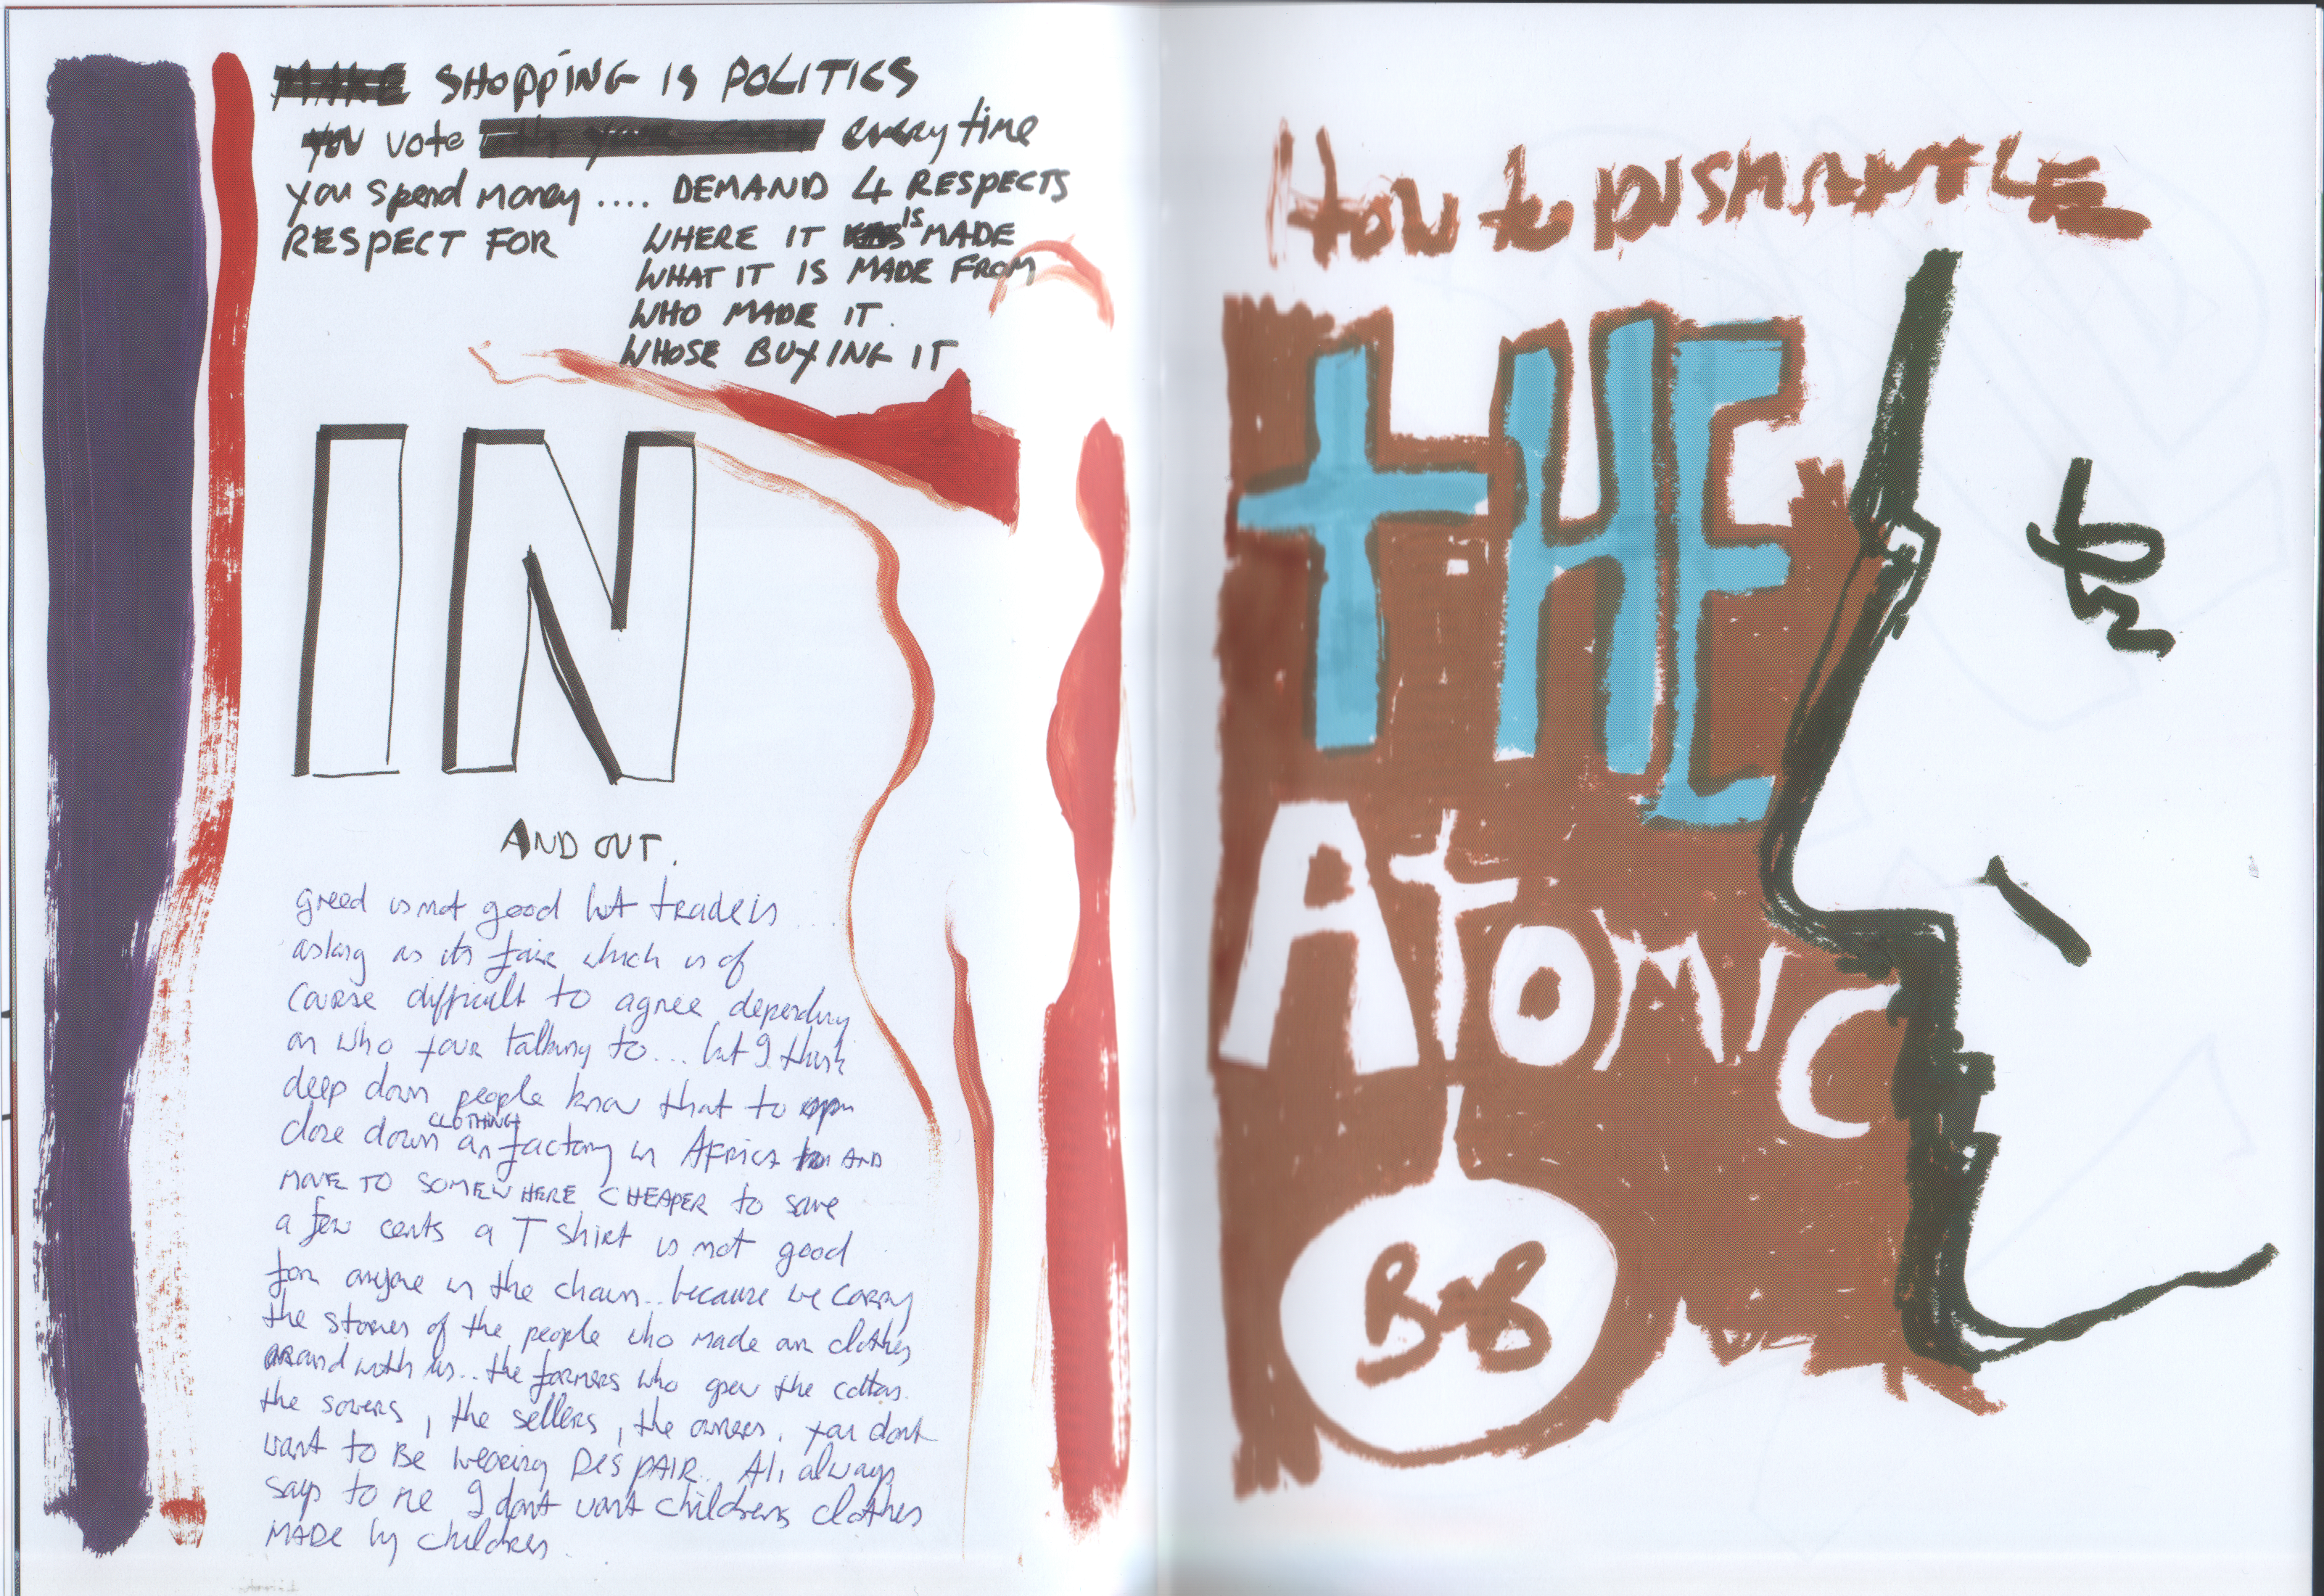 MAKE SHOPPING IS POLITICS
YOU vote with your CASH every time
you spend money .... DEMAND 4 RESPECTS
RESPECT FOR WHERE IT IS MADE
WHAT IT IS MADE FROM
WHO MADE IT.
WHOSE BUYING IT
IN
AND OUT.
greed is not good but trade is
aslong as its fair which is of
course difficult to agree depending
on who your talking to... but I think
deep down people know that to open
close down an CLOTHING factory in AFRICA AND
MOVE TO SOMEWHERE CHEAPER to save
a few cents a T shirt is not good
for anyone in the chain.. because we carry
the stories of the people who made our clothes
around with us.. the farmers who grew the cotton.
the sowers, the sellers, the owners. you dont
want to Be wearing DESPAIR.. Ali always
says to me I dont want childrens clothes
MADE by children.
How to DISMANTLE
tHE
AtOMIC
BoB